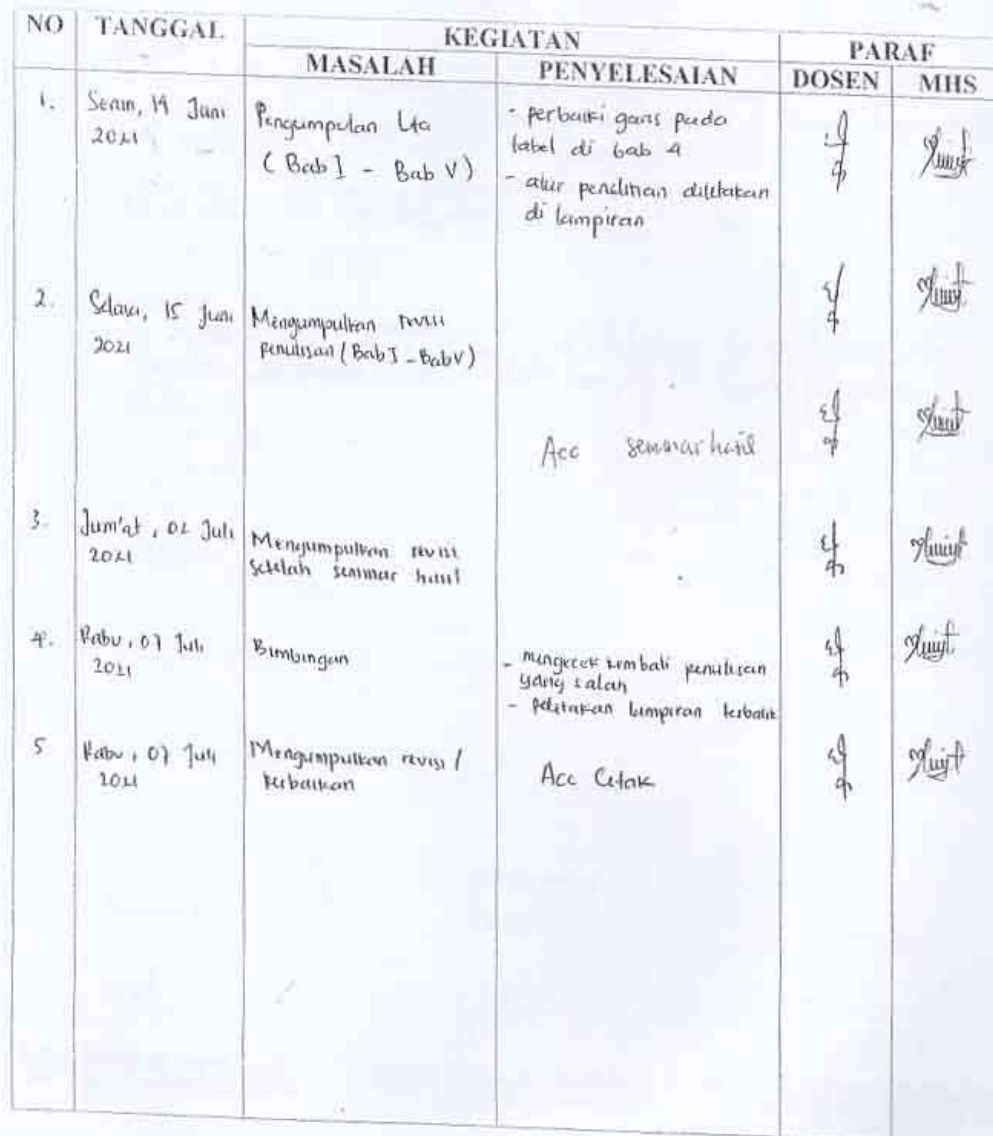 NO TANGGAL KEGIATAN PARAF
MASALAH PENYELESAIAN DOSEN MHS
1. Senin, 14 Juni
2021
Pengumpulan Lta
(Bab I - Bab V)
- perbaiki garis pada
tabel di bab 4
- alur penelitian diletakan
di lampiran
2. Selasa, 15 Juni
2021
Mengumpulkan revisi
penulisan (Bab I - Bab V)
Acc seminar hasil
3. Jum'at, 02 Juli
2021
Mengumpulkan revisi
setelah seminar hasil
4. Rabu, 07 Juli
2021
Bimbingan
- mengecek kembali penulisan
yang salah
- peletakan lampiran terbalik
5 Rabu, 07 Juli
2021
Mengumpulkan revisi /
perbaikan
Acc Cetak